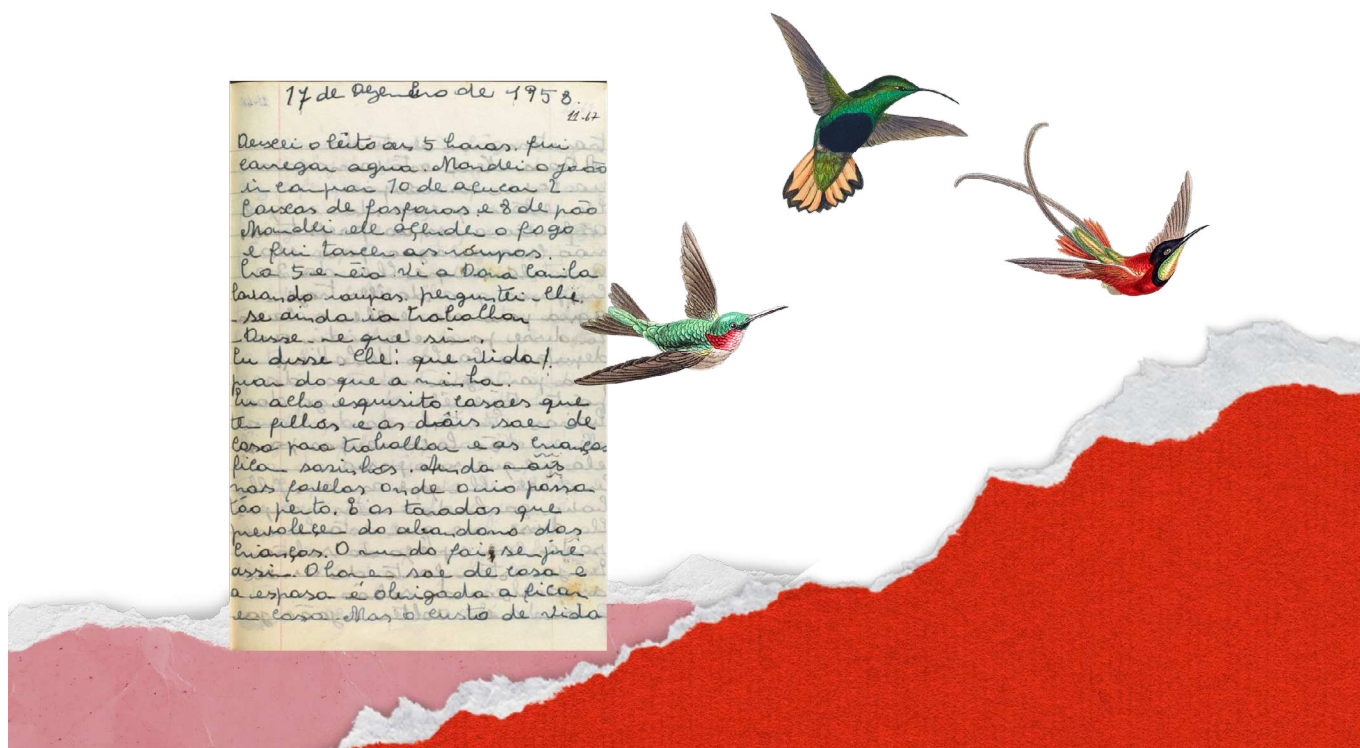 17 de Dezembro de 1958.
11-67
Deixei o leito as 5 horas. fui
carregar agua. Mandei o João
ir comprar 10 de açucar 2
caixas de fosforos e 8 de pão
Mandei ele acender o fogo
e fui torcer as roupas.
Era 5 e mêia vi a Dona
lavando roupas. perguntei-lhe.
se ainda ia trabalhar
_ Disse-me que sim.
Eu disse lhe: que vida!
pior do que a minha.
Eu acho esquisito casaes que
tem filhos e os dôis sae de
casa para trabalhar e as crianças
fica sosinhos. Ainda mais
nas favelas onde o rio pássa
tão perto. E os tarados que
prevaleçem do abandono das
crianças. O mundo foi, sempre
assim. O homem sae de casa e
a esposa é obrigada a ficar
em casa. Mas o custo de vida